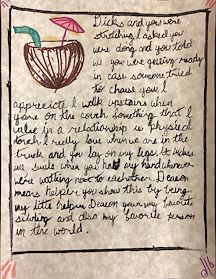 Dicks and you were
stretching, I asked you
were doing and you told
me you were getting ready
in case someone tried
to chase you. I
appreciate I walk upstairs when
your on the couch. Something that I
value in a relationship is physical
touch I really love when we are in the
truck and you lay on my legs. It
me smile when you my hand when
were walking next to eachother. Deacon
means helper you show this by being
my little helper. Deacon your my favorite
sibling and also my favorite person
in the world.